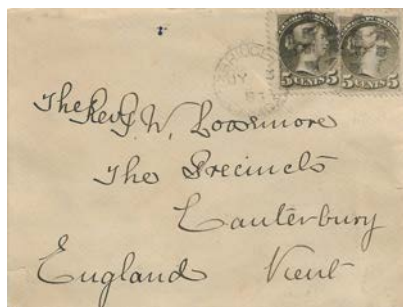 5 CENTS 5 5 CENTS 5
The Rev. G. W. Loosemore
The Precincts
Canterbury
England Kent